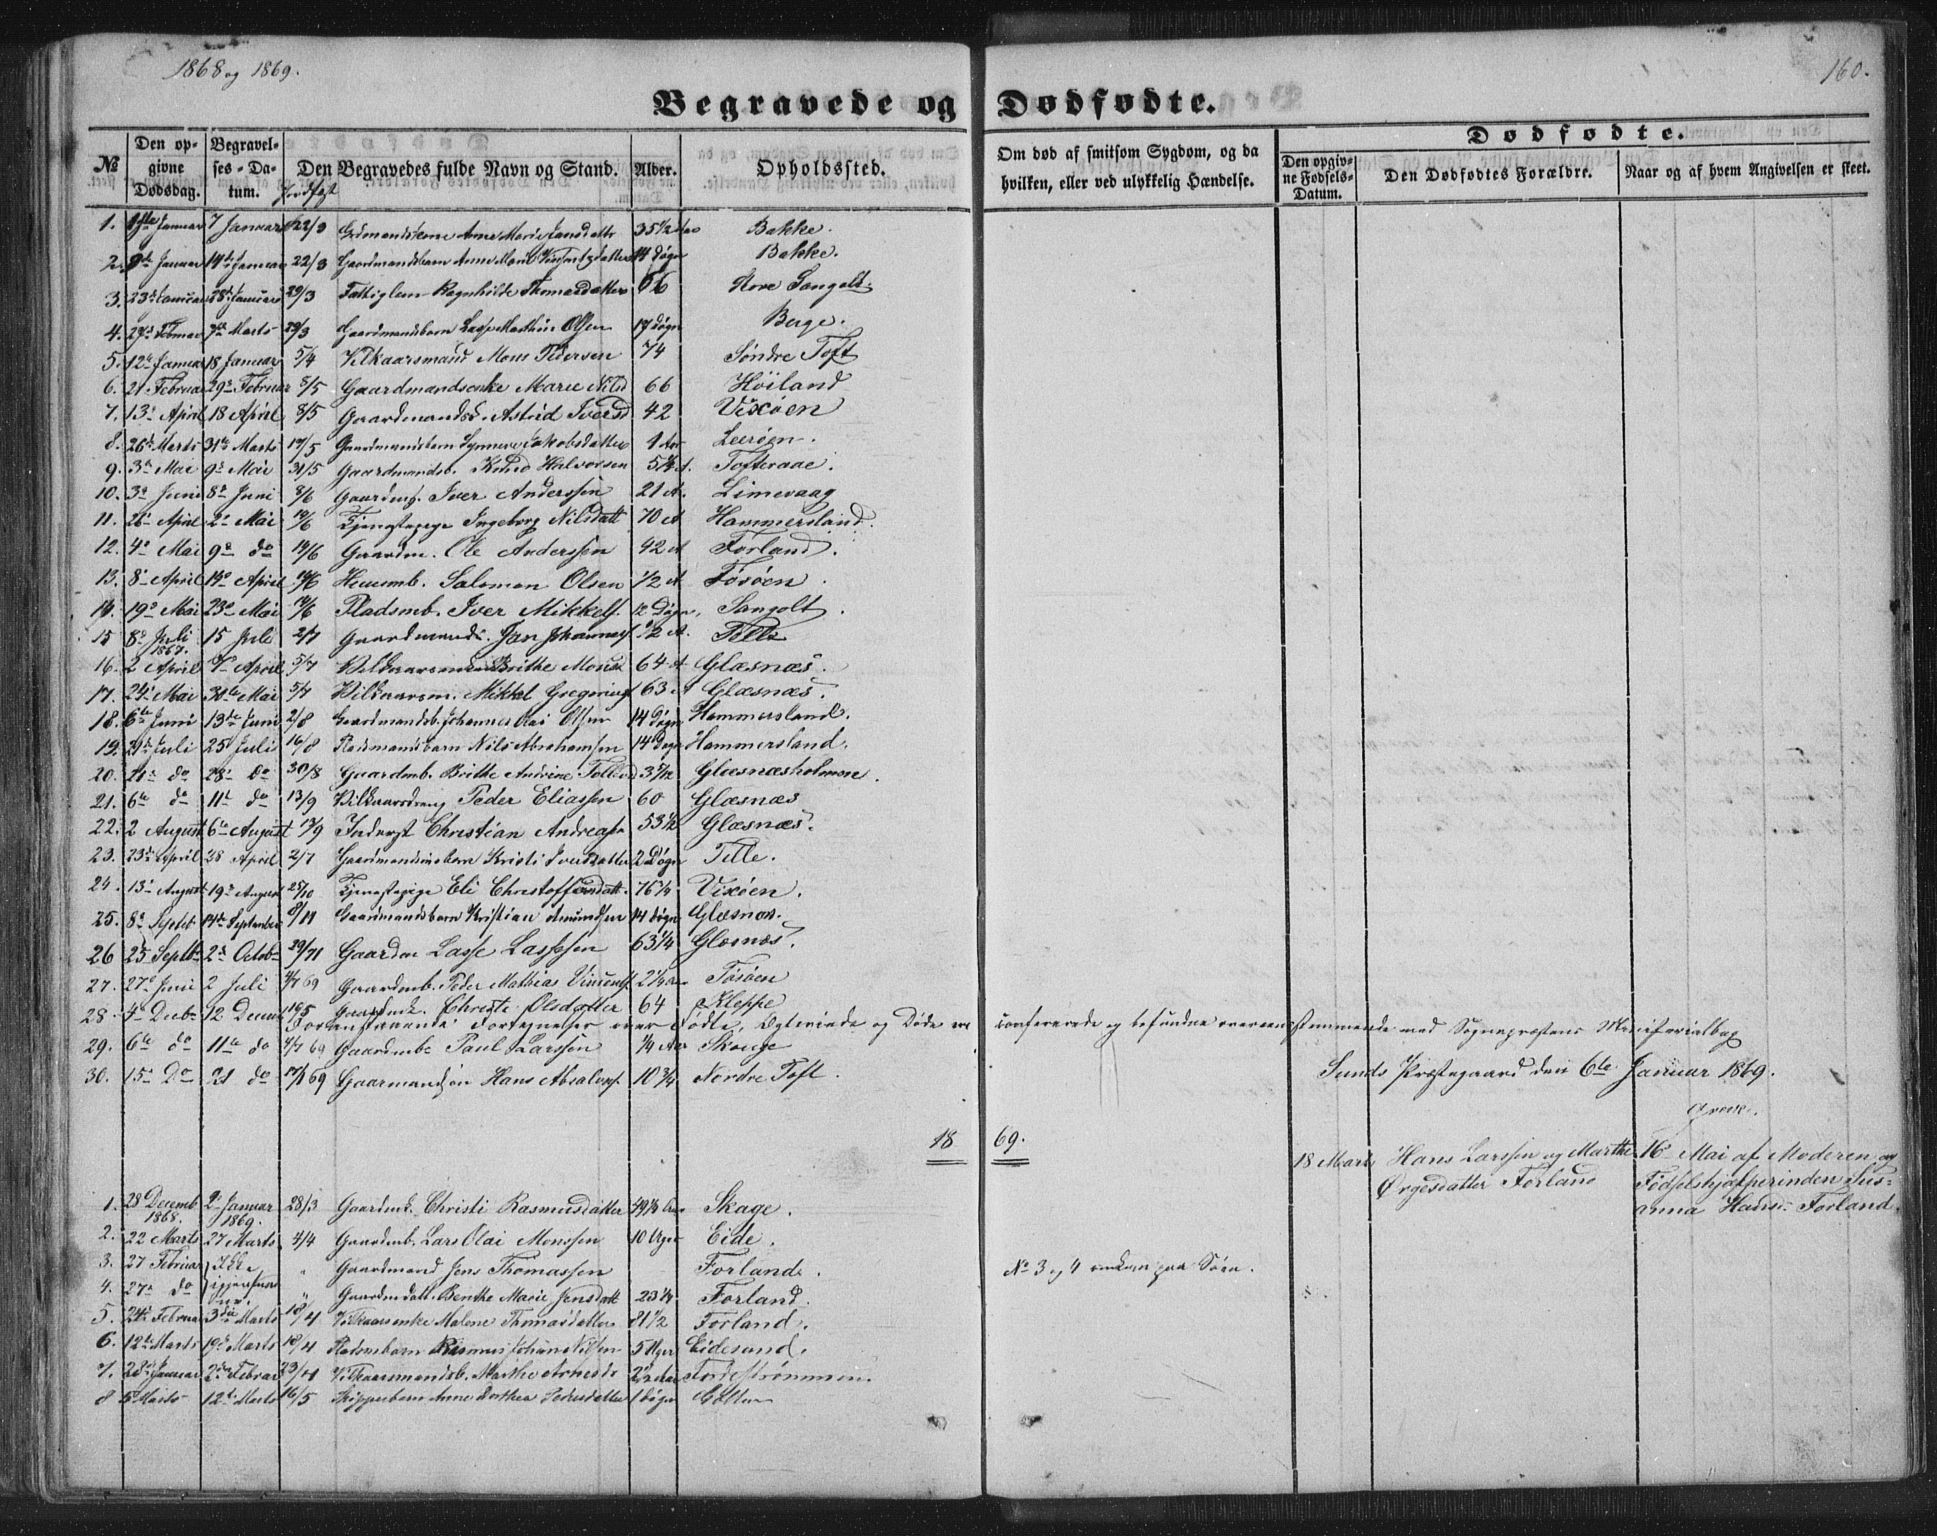 1868 og 1869.
160.
Begravede og Dødfødte.
№
Den opgivne Dødsdag.
Begravelses-Datum.
Den Begravedes fulde Navn og Stand.
Jordfæst
Alder.
Opholdssted.
Om død af smitsom Sygdom, og da hvilken, eller ved ulykkelig Hændelse.
Dødfødte.
Den opgivne Fødsels-Datum.
Den Dødfødtes Forældre.
Naar og af hvem Angivelsen er skeet.
1. 1ste Januar 7 Januar 22/3 Anne Marie 35 1/2 Bakke.
2. Januar 14de Januar 22/3 Gaardmandsbarn Anne Marie 14 Døgn Bakke.
3. 23de Januar 28de Januar 29/3 Fattiglem Ragnhilde Thomasdatter 66 Store Sangolt.
4. 27de Februar 7de Marts 29/3 Gaardmandsbarn Lasse Martin Olsen 17 Døgn Berge.
5. 12te Januar 18 Januar 5/4 Vilkaarsmand Mons Pedersen 74 Søndre Toft
6. 21 Februar 29de Februar 3/5 Gaardmandsenke Marie Nilsd 66 Høiland
7. 13de April 18 April 3/5 Gaardmandsd. Astrid Iversd 42 Vixøen
8. 26de Marts 31te Marts 17/5 Gaardmandsbarn Synneve Jakobsdatter 1 Aar Leerøen.
9. 3de Mai 9de Mai 31/5 Gaardmandsb. Knud Halvorsen Tofteraae.
10. 3de Juni 8de Juni /6 Iver Anderssen 21 A. Limevaag
11. 26de April 2de Mai /6 Tjenestepige Ingeborg Nilsdatt 70 A Hammersland.
12. 4de Mai 9de do 14/6 Gaardm. Ole Anderssen 42 A Forland.
13. 8de April April /6 Huusmb. Salomon Olsen 1/2 A Tøsøen.
14. 19de Mai 23de Mai 14/6 Pladsmb. Iver Mikkels. 12 Døgn. Sangolt.
15 8de Juli 15 Juli 2/7 Gaardmands. Jan Johannes 1/2 A. Telle
1867.
16. 2 April 7de April 5/7 Brithe Monsd 64 A Glæsnæs.
17. 24de Mai 30te Mai 5/7 Vilkaarsm. Mikkel Gregorius 63 A Glæsnæs.
18. 6te Juni 13de Juni 2/8 Gaardmandsb. Johannes Olai Olsen 14 Døgn Hammersland.
19. Juli 25de Juli 16/8 Pladsmandsbarn Nils Abrahamsen 14 Døgn Hammersland.
20. 21de do 28de do 30/8 Gaardmb. Brithe Andrine Tollevd Glæsnæsholmen.
21. 6te do 11te do 13/9 Vilkaarsdreng Peder Eliassen 60 Glæsnæs
22. 2 August 6te August 13/9 Inderst Christian Andreass 53 1/2 Glæsnæs.
23. 23de April 28 April 2/7 Kristi Iversdatter 2 Døgn Telle.
24. 13de August 19de August 25/10 Tjenestepige Eli Christoffersdatt. 76 1/4 Vixøen.
25. 8de Septbr 14de September 8/11 Gaardmandsbarn Kristian Amundsen 14 Døgn Glæsnæs.
26 25 Septbr 2de Octobr 29/11 Gaardm Lasse Lassesen 63 1/4 Glæsnæs.
27. 27de Juni 2 Juli 69 Gaardmb. Peder Mathias Vincents 2 1/2 Aar Tøsøen
28. 4de Decbr 12 Decem 19/5 Christi Olsdatter 64 Kleppe
Foranstaaende Fortegnelser over Fødte, Egteviede og Døde ere confererede og befundne overeensstemmende med Sognepræstens Ministerialbog
29. 6te do 11te do 69 Gaardmb. Paul Larssen 1/4 Aar Skauge
Sunds Præstegaard den 6te Januar 1869.
30. 15de Do 21 do 17/1 69 Gaarmandssøn Hans Absalons. 10 3/4 Nordre Toft.
1869.
18 Marts Hans Larssen og Marthe Ørgesdatter Forland 16de Mai af Moderen og Fødselshjælperinden Susanna Hansd. Forland.
1. 28 Decemb 1868. 2de Januar 1869. 28/3 Gaardenk. Christi Rasmusdatter 49 1/2 Aar Skage.
2. 22 Marts 27 Marts 4/4 Gaardmb. Lars Olai Monssen 10 Uger Eide.
3. 27 Februar Ikke igjenfundne. " Gaardmand Jens Thomassen Forland.
No 3 og 4 omkom paa Søen.
4. 27de do " Gaardmdatt. Benthe Marie Jensdatt 23 1/4 Forland.
5. 24de Februar 3die Marts 18/4 Vilkaarsenke Malene Thomasdatter 81 1/2 Forland.
6. 12te Marts 19de Marts 18/4 Pladsmbarn Rasmus Johan Nilsen 5 Uger Eidesund.
7. 28de Januar 2den Februar 23/ Vilkaarsmandsb. Marthe Arnesdr 2 1/2 Aar Tofteströmmen.
8 5 Marts 12te Marts 16/5 Skipperbarn Anne Dorthea Pedersdatter 1 Døgn